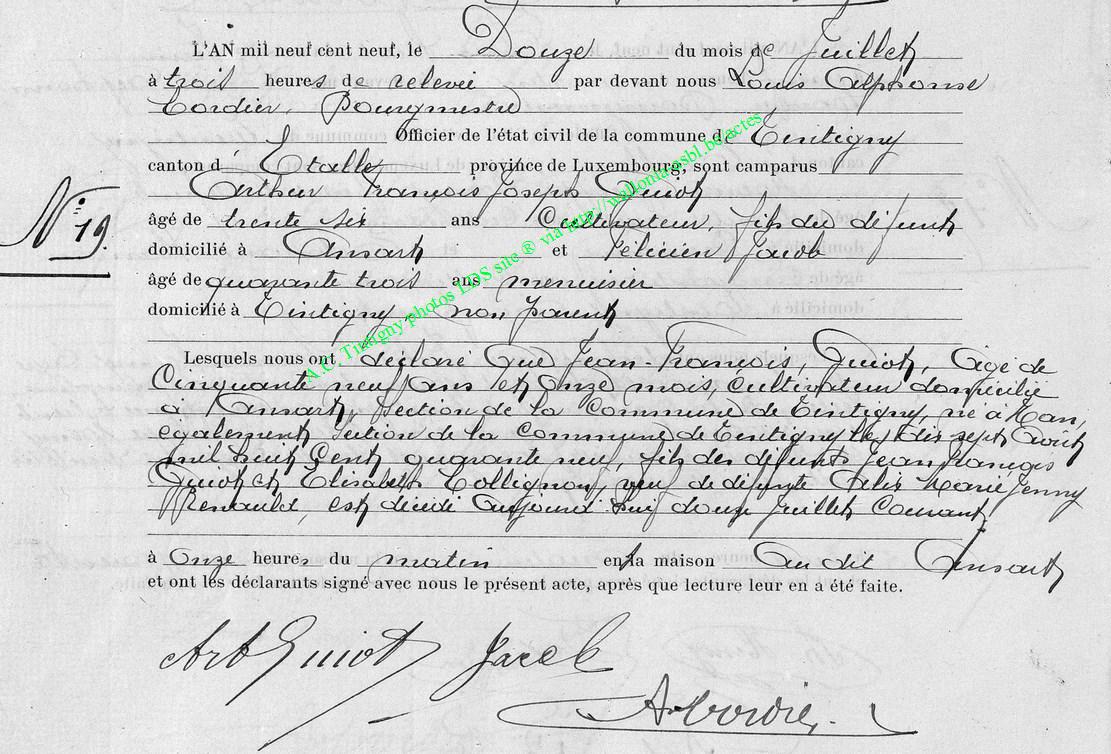 L'AN mil neuf cent neuf, le Douze du mois de Juillet
à trois heures de relevée par devant nous Louis Alphonse
Cordier, Bourgmestre
Officier de l'état civil de la commune de Tintigny
canton d'Etalle province de Luxembourg, sont comparus
Arthur François Joseph Guiot
N° 19.
âgé de trente six ans Cultivateur, fils du défunt
domicilié à Ansart et Félicien Jacob
âgé de quarante trois ans menuisier
domicilié à Tintigny, non parent
Lesquels nous ont déclaré Que Jean-François, Guiot, Agé de
Cinquante neuf ans et onze mois, Cultivateur domicilié
à Ansart, Section de la Commune de Tintigny, né à Han,
également Section de la Commune de Tintigny le dix sept Août
mil huit Cent quarante neuf, fils des défunts Jean François
Guiot et Elisabeth Collignon, veuf de défunte Marie Jenny
Renauld, est décédé aujourd'hui douze Juillet Courant,
à Onze heures du matin en la maison Audit Ansart
et ont les déclarants signé avec nous le présent acte, après que lecture leur en a été faite.
Art Guiot Jacob
A. Cordier
A.C. Tintigny photos LDS site ® via http://wallonia.asbl.be/actes